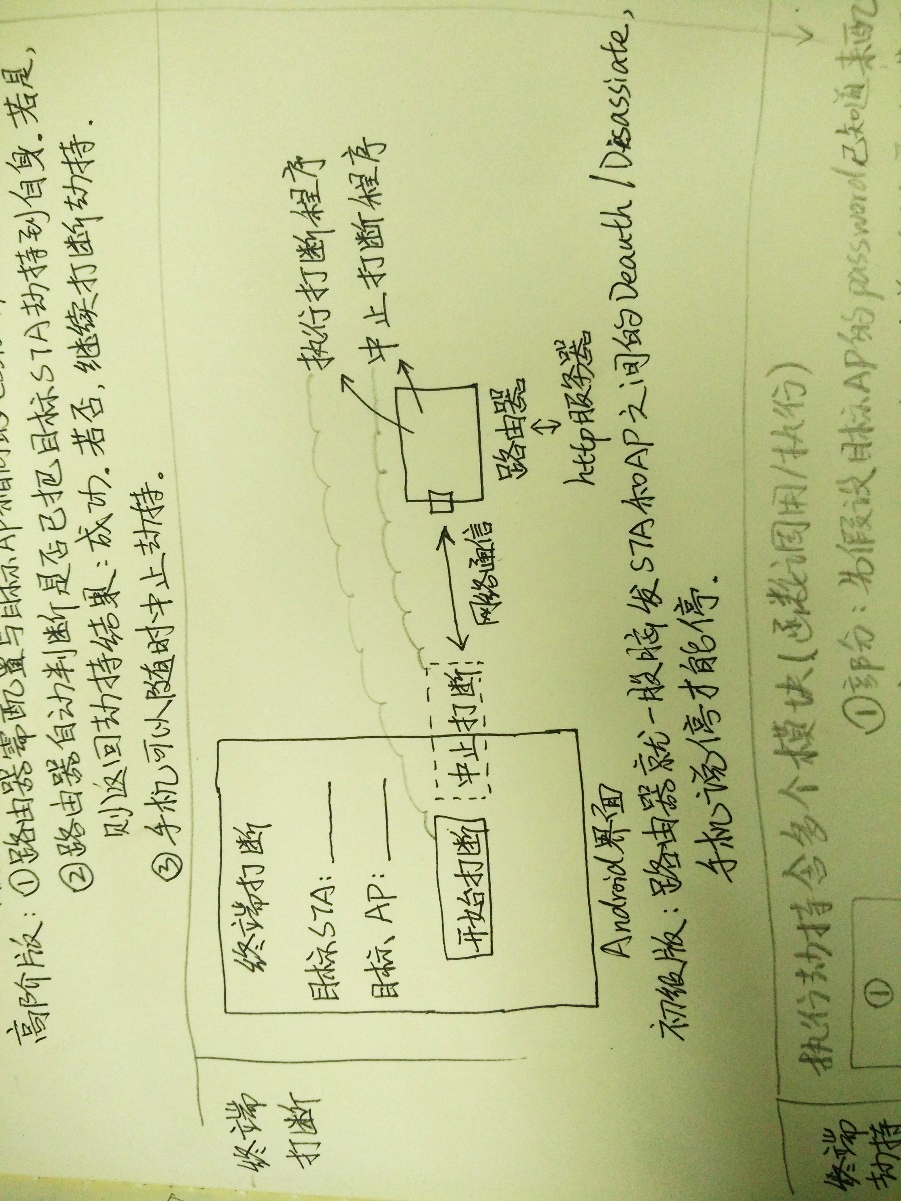 高阶版：①路由器需配置与目标AP相同的
②路由器自动判断是否已把目标STA劫持到自身．若是，
则返回劫持结果：成功．若否，继续打断劫持．
③手机可以随时中止劫持．
终端
打断
终端打断
目标STA：
目标AP：
开始打断
中止打断
Android界面
网络通信
路由器
↕
http服务器
执行打断程序
中止打断程序
初级版：路由器就一股脑发STA和AP之间的Deauth/Disassiate，
手机说停才能停．
终端
劫持
执行劫持含多个模块（函数调用/执行）
①部份：为假设目标AP的password已知道来配
①